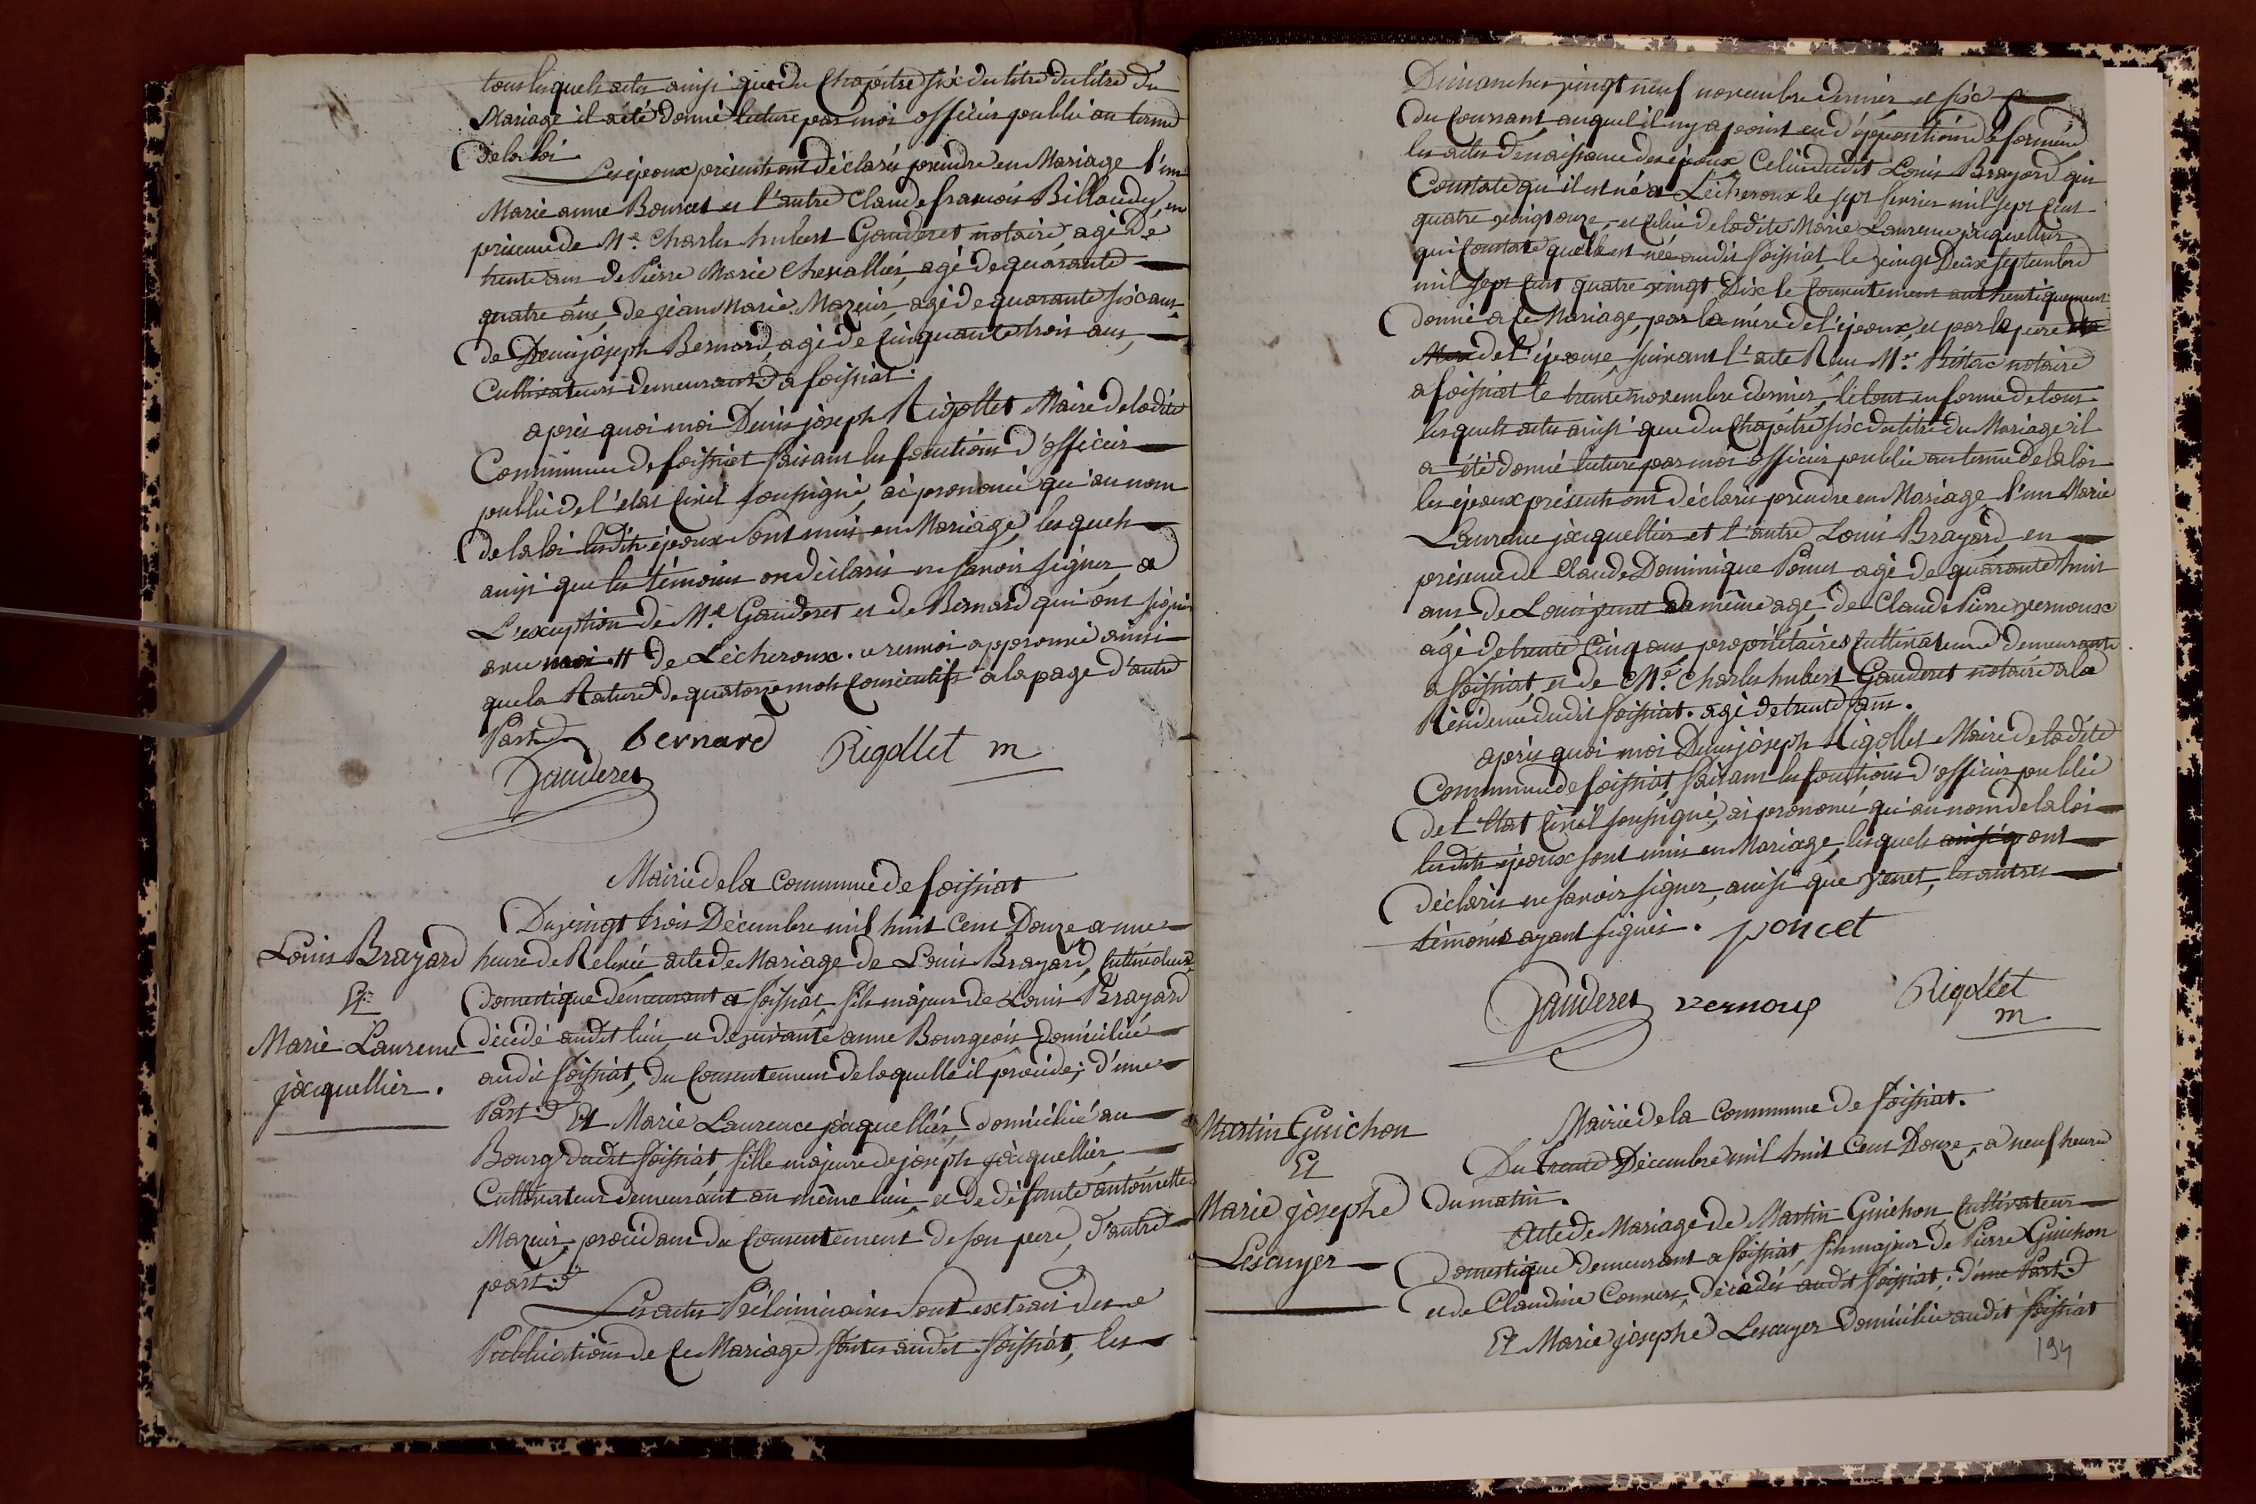 tous lesquels actes ainsi que du Chapitre six du titre du titre du
Mariage il a été donné lecture par moi officier public au terme
de la loi
Les époux présents ont déclaré prendre en Mariage l'un
Marie anne Bouret et l'autre Claude françois Billaudy, en
présence de Me. Charles hubert Gauderet notaire agé de
trente ans de Pierre Marie Chevallier, agé de quarante
quatre ans, de jéan Marie Mazuir, agé de quarante six ans,
de Denis joseph Bernard, agé de Cinquante trois ans,
Cultivateurs demeurants a foissiat.
après quoi moi Denis joseph Rigollet Maire de ladite
Commune de foissiat faisant les fonctions d'officier
public de l'état Civil soussigné, ai prononcé qu'au nom
de la loi lesdits époux sont unis en Mariage, lesquels
ainsi que les témoins on déclaré ne savoir signer, a
L'exception de Me Gauderet et de Bernard qui ont signé
avec moi. // de Lécheroux. ce renvoi approuvé ainsi
que la Rature de quatorze mots Consécutifs a la page d'autre
Part
bernard Rigollet m
Gauderet
Mairie de la Commune de foissiat
Louis Brayard
Et
Marie Laurence
jacquellier.
Du vingt trois Décembre mil huit Cent Douze a une
heure de Relevée, acte de Mariage de Louis Brayard, Cultivateur
domestique demeurant a foissiat fils majeur de Louis Brayard
décédé audit lieu, et de vivante anne Bourgeois domiciliée
audit foissiat, du Consentement de laquelle il procéde; d'une
Part
Et Marie Laurence jacquellier domiciliée au
Bourg dudit foissiat, fille majeure de joseph jacquellier,
Cultivateur demeurant au même lieu, et de défunte antoinette
Mazuir, procédant du Consentement de son pere, d'autre
part
Les actes Préliminaires sont extrait des
Publications de Ce Mariage faites audit foissiat, les
Dimanches vingt neuf novembre dernier et six
du Courrant, auquel il ny a point eu d'opposition de formée
les actes de naissance des époux Celui dudit Louis Brayard qui
Constate qu'il est né a Lécheroux le sept fevrier mil sept Cent
quatre vingt onze, et Celui de ladite Marie Laurence jacquellier
qui Constate quelle est née audit foissiat le vingt Deux septembre
mil sept Cent quatre vingt Dix le Consentement authentiquement
donné a ce Mariage, par la mére de l'époux, et par le pere
de l'épouse, suivant l'acte Reçu Me. notaire
a foissiat le trente novembre dernier, le tout en forme de tous
lesquels actes ainsi que du Chapitre six du titre du Mariage il
a été donné lecture par moi officier public au terme de la loi
les époux présents ont déclaré prendre en Mariage l'un Marie
Laurence jacquellier et l'autre Louis Brayard, en
présence de Claude Dominique Poncet agé de quarante huit
ans, de Louis du même age, de Claude Pierre Vernoux
agé de trente Cinq ans propriétaires Cultivateurs demeurants
a foissiat, et de Me. Charles hubert Gauderet notaire a la
Résidence dudit foissiat. agé de trente ans.
après quoi moi Denis joseph Rigollet Maire de ladite
Commune de foissiat, faisant les fonctions d'officier public
de l'état Civil soussigné, ai prononcé qu'au nom de la loi
lesdits époux sont unis en Mariage, lesquels ont
déclaré ne savoir signer, ainsi que venet, les autres
témoins ayant signés. poncet
Gauderet vernoux Rigollet
m
Mairie de la Commune de foissiat.
Martin Guichon
Et
Marie josephe
Lescuyer
Du trente Décembre mil huit Cent Douze, a neuf heure
du matin.
Acte de Mariage de Martin Guichon Cultivateur
Domestique demeurant a foissiat, fils majeur de Pierre Guichon
et de Claudine décédés audit foissiat; d'une Part
Et Marie josephe Lescuyer domiciliée audit foissiat
194